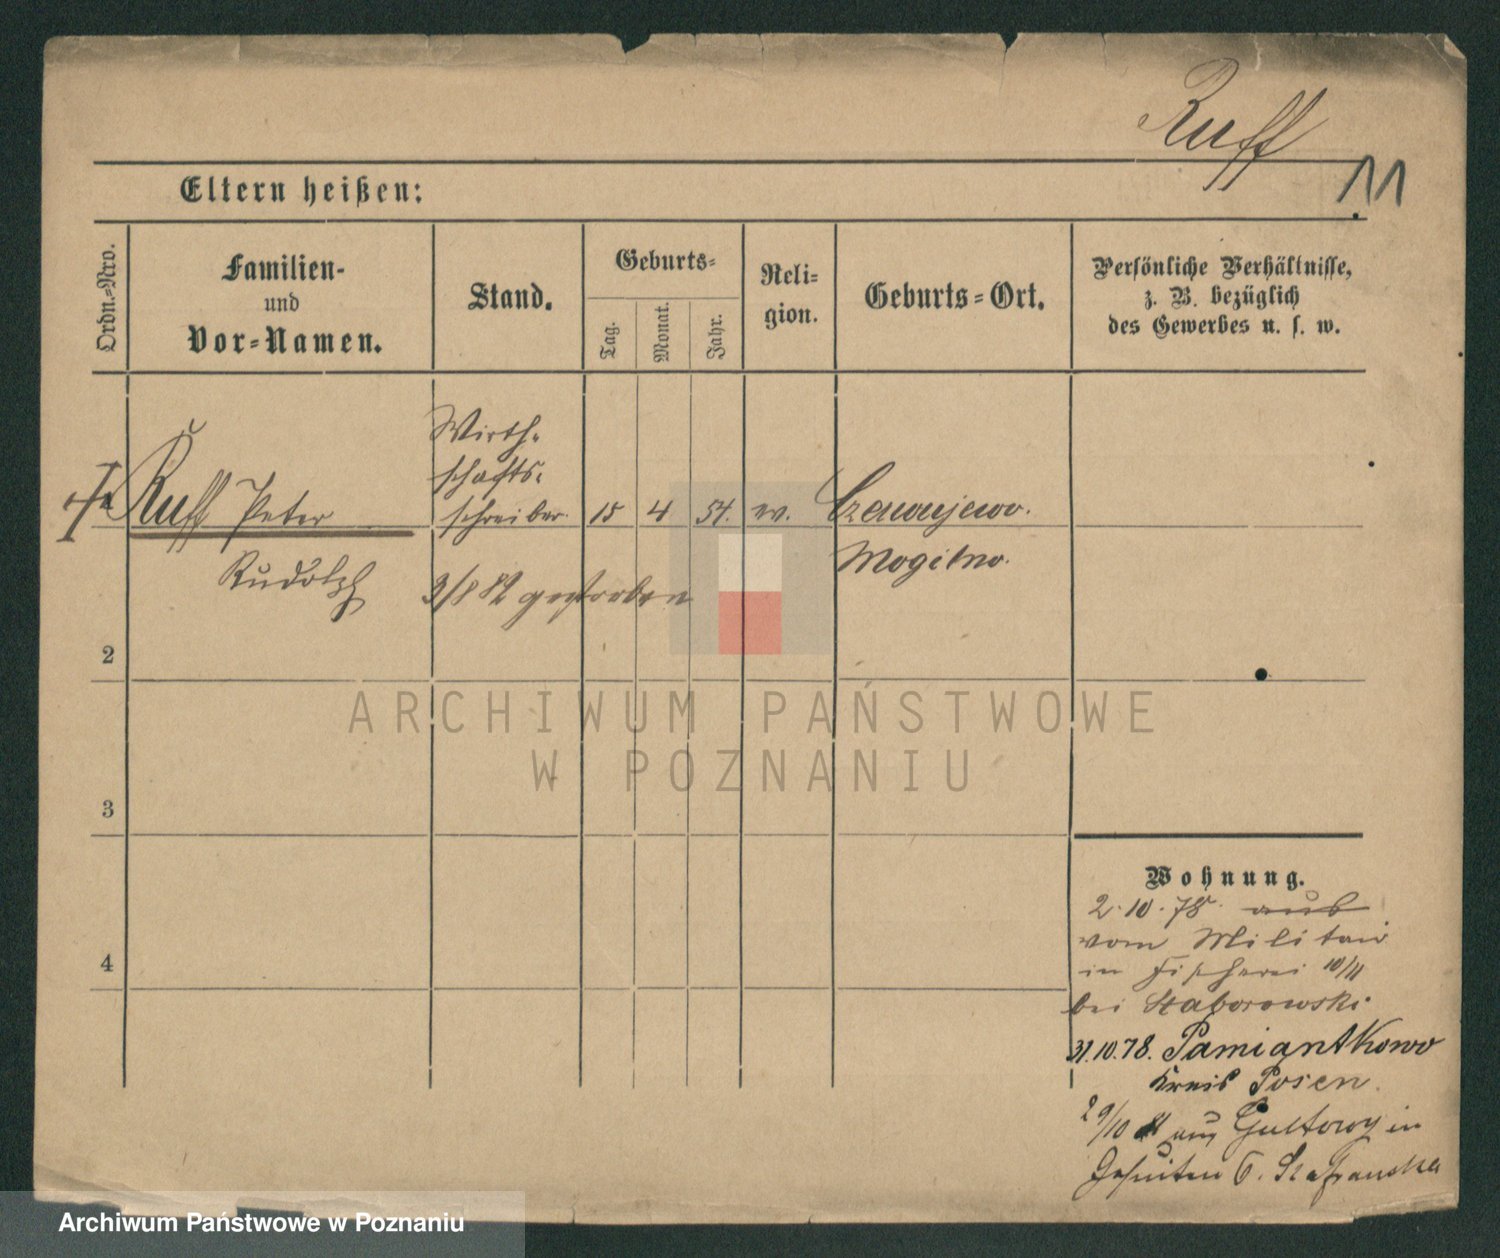 Ruff
11
Eltern heißen:
Ordn.-Nro.
Familien-
und
Vor-Namen.
Stand.
Geburts-
Tag.
Monat.
Jahr.
Reli-
gion.
Geburts-Ort.
Persönliche Verhältnisse,
z. B. bezüglich
des Gewerbes u. s. w.
Ruff Peter
Rudolph
Wirth-
schafts-
schreiber.
15
4
54.
ev.
Mogilno.
3/8 82 gestorben
2
3
4
Wohnung.
2.10.78. aus
vom Militair
in Fischerei 10/11
bei
31.10.78. Pamiantkowo
Kreis Posen.
29/10 aus Gultowy in
Jesuiten 6. Szafranska
ARCHIWUM PAŃSTWOWE
W POZNANIU
Archiwum Państwowe w Poznaniu